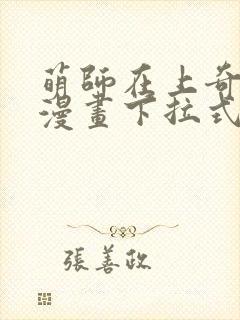 萌師在上奇
漫畫下拉式
張善政